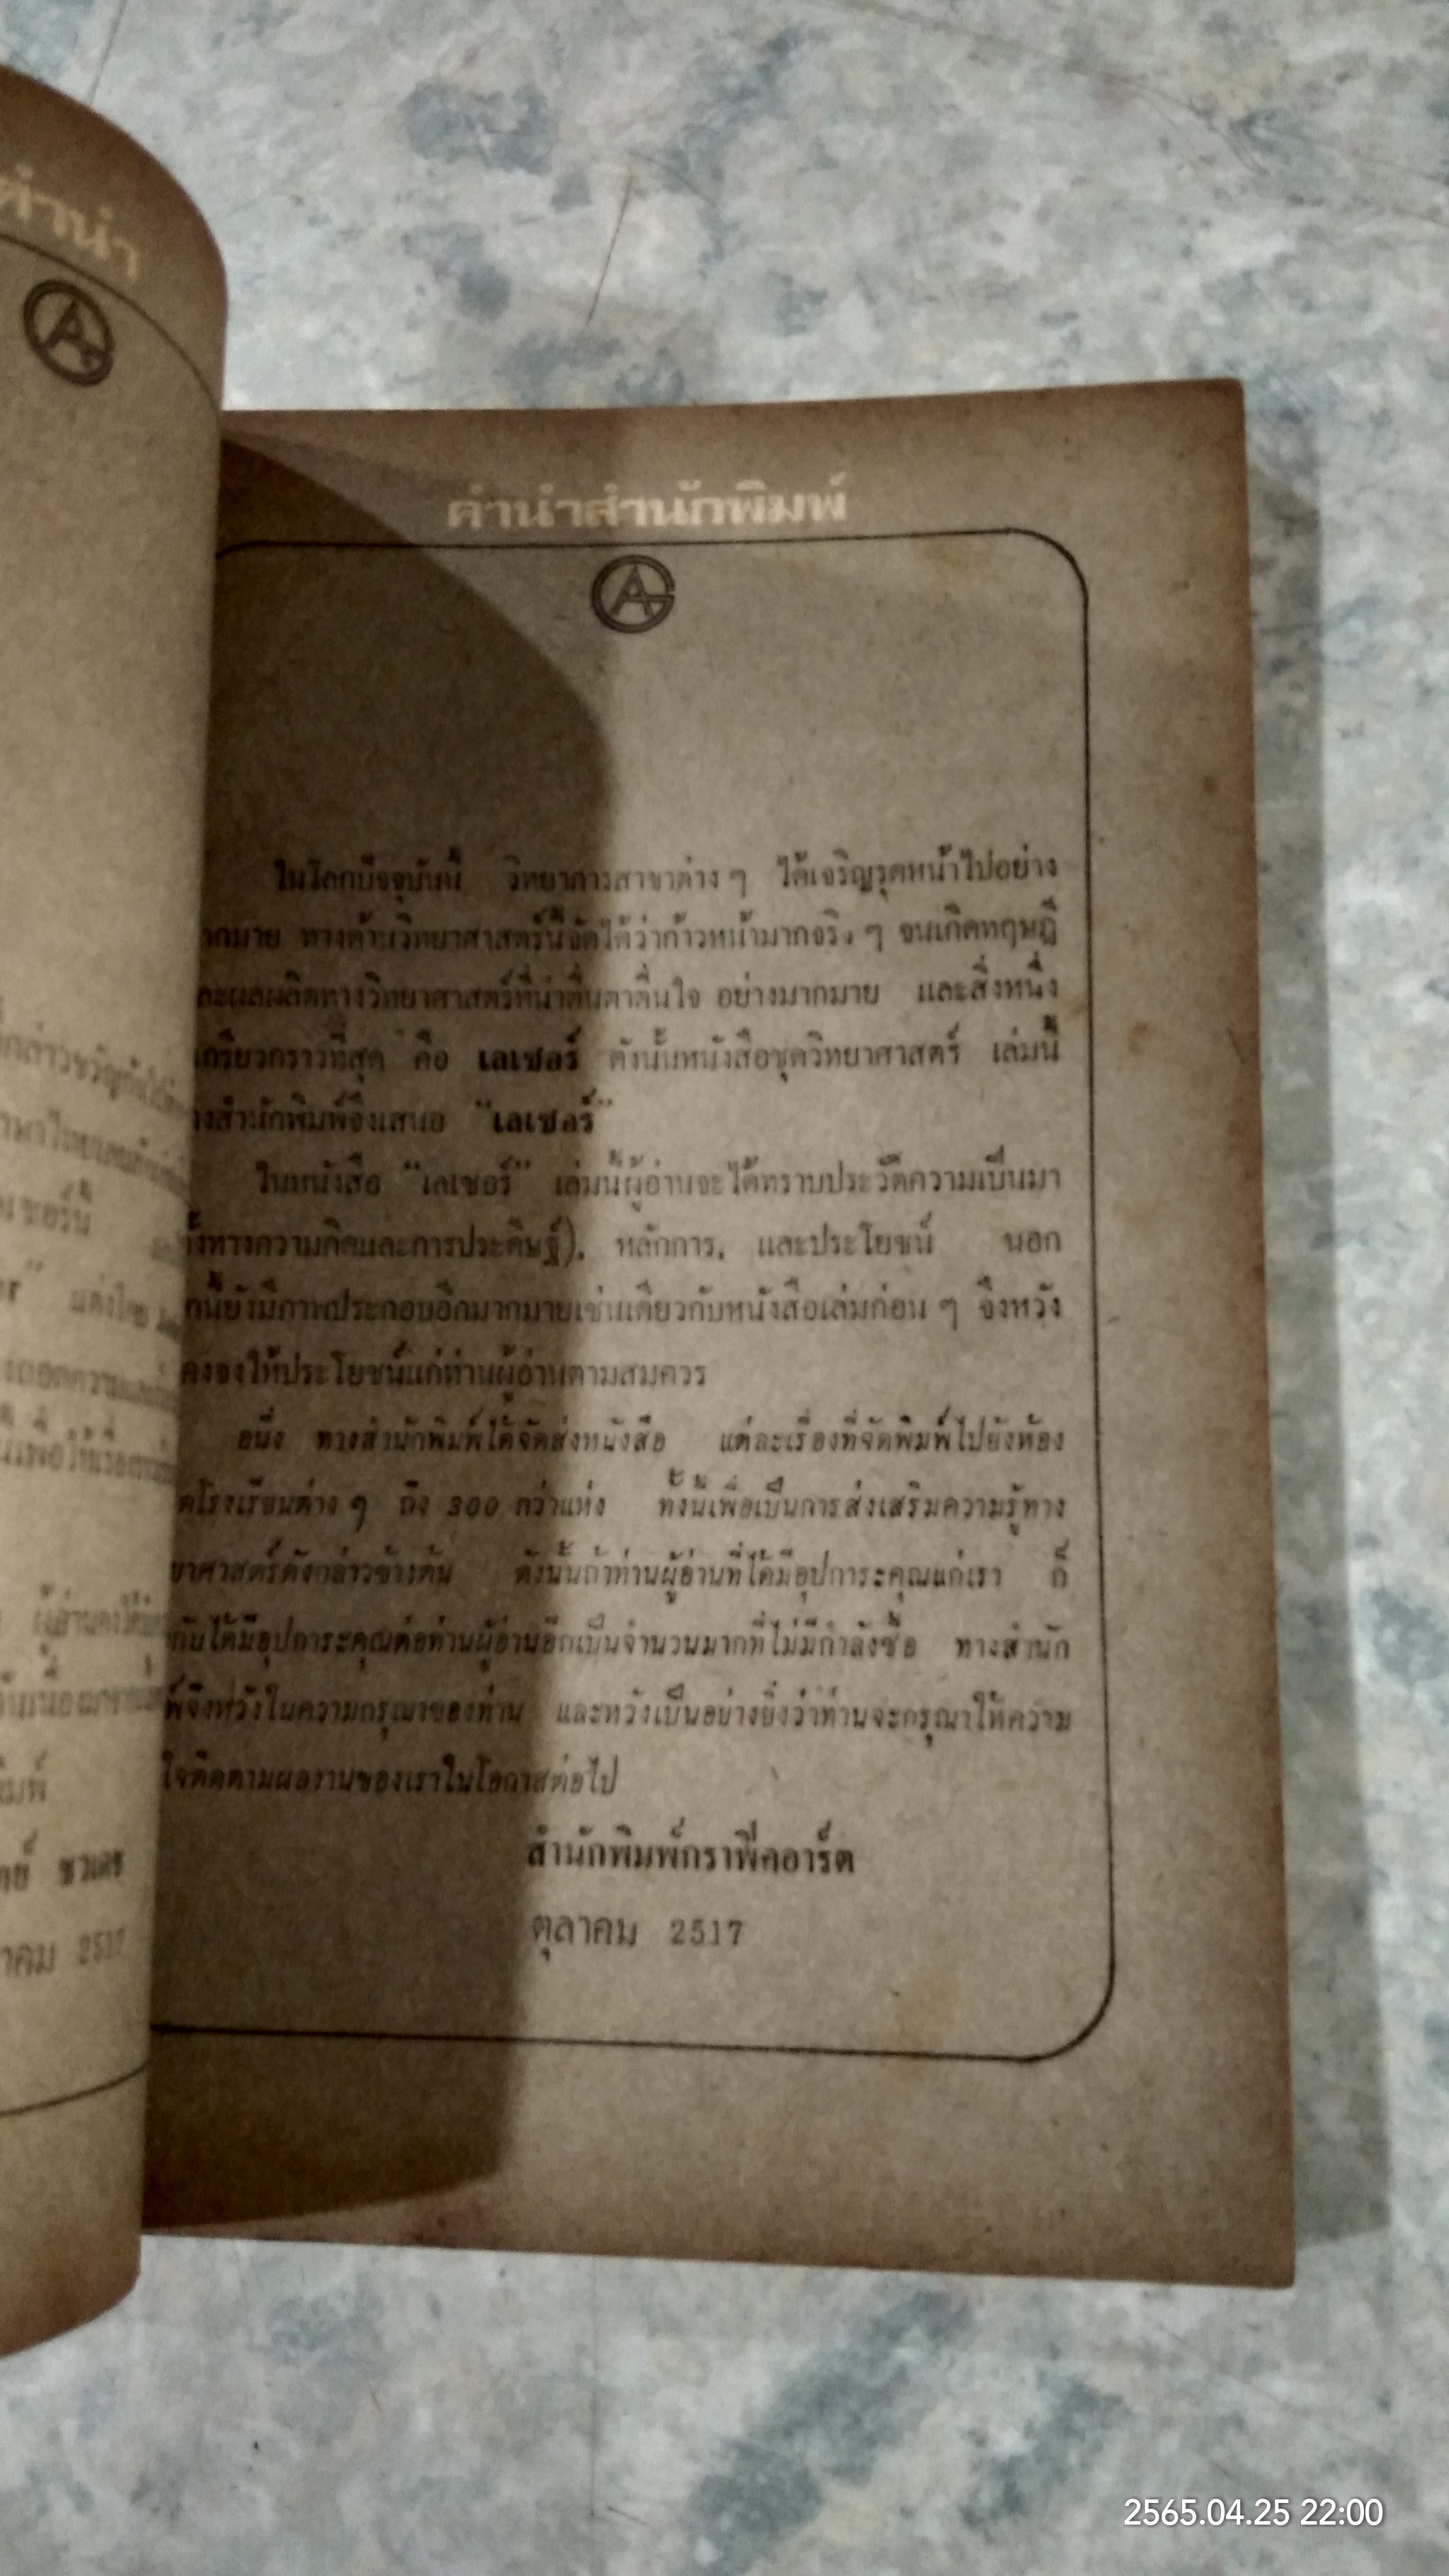 คำนำ
คำนำสำนักพิมพ์
ในโลกปัจจุบันนี้ วิทยาการสาขาต่าง ๆ ได้เจริญรุดหน้าไปอย่าง
ากมาย ทางด้านวิทยาศาสตร์นี้จัดได้ว่าก้าวหน้ามากจริง ๆ จนเกิดทฤษฎี
ละผลผลิตทางวิทยาศาสตร์ที่น่าตื่นตาตื่นใจ อย่างมากมาย และสิ่งหนึ่ง
เกรียวกราวที่สุด คือ เลเซอร์ ดังนั้นหนังสือชุดวิทยาศาสตร์ เล่มนี้
างสำนักพิมพ์จึงเสนอ "เลเซอร์"
ในหนังสือ "เลเซอร์" เล่มนี้ผู้อ่านจะได้ทราบประวัติความเป็นมา
ั้งทางความคิดและการประดิษฐ์), หลักการ, และประโยชน์ นอก
กนี้ยังมีภาพประกอบอีกมากมายเช่นเดียวกับหนังสือเล่มก่อน ๆ จึงหวัง
คงจงให้ประโยชน์แก่ท่านผู้อ่านตามสมควร
อนึ่ง ทางสำนักพิมพ์ได้จัดส่งหนังสือ แต่ละเรื่องที่จัดพิมพ์ไปยังห้อง
ดโรงเรียนต่าง ๆ ถึง 300 กว่าแห่ง ทั้งนี้เพื่อเป็นการส่งเสริมความรู้ทาง
ยาศาสตร์ดังกล่าวข้างต้น ดังนั้นถ้าท่านผู้อ่านที่ได้มีอุปการะคุณแก่เรา ก็
กับได้มีอุปการะคุณต่อท่านผู้อ่านอีกเป็นจำนวนมากที่ไม่มีกำลังซื้อ ทางสำนัก
พ์จึงหวังในความกรุณาของท่าน และหวังเป็นอย่างยิ่งว่าท่านจะกรุณาให้ความ
ใจติดตามผลงานของเราในโอกาสต่อไป
สำนักพิมพ์กราฟิคอาร์ต
ตุลาคม 2517
2565.04.25 22:00